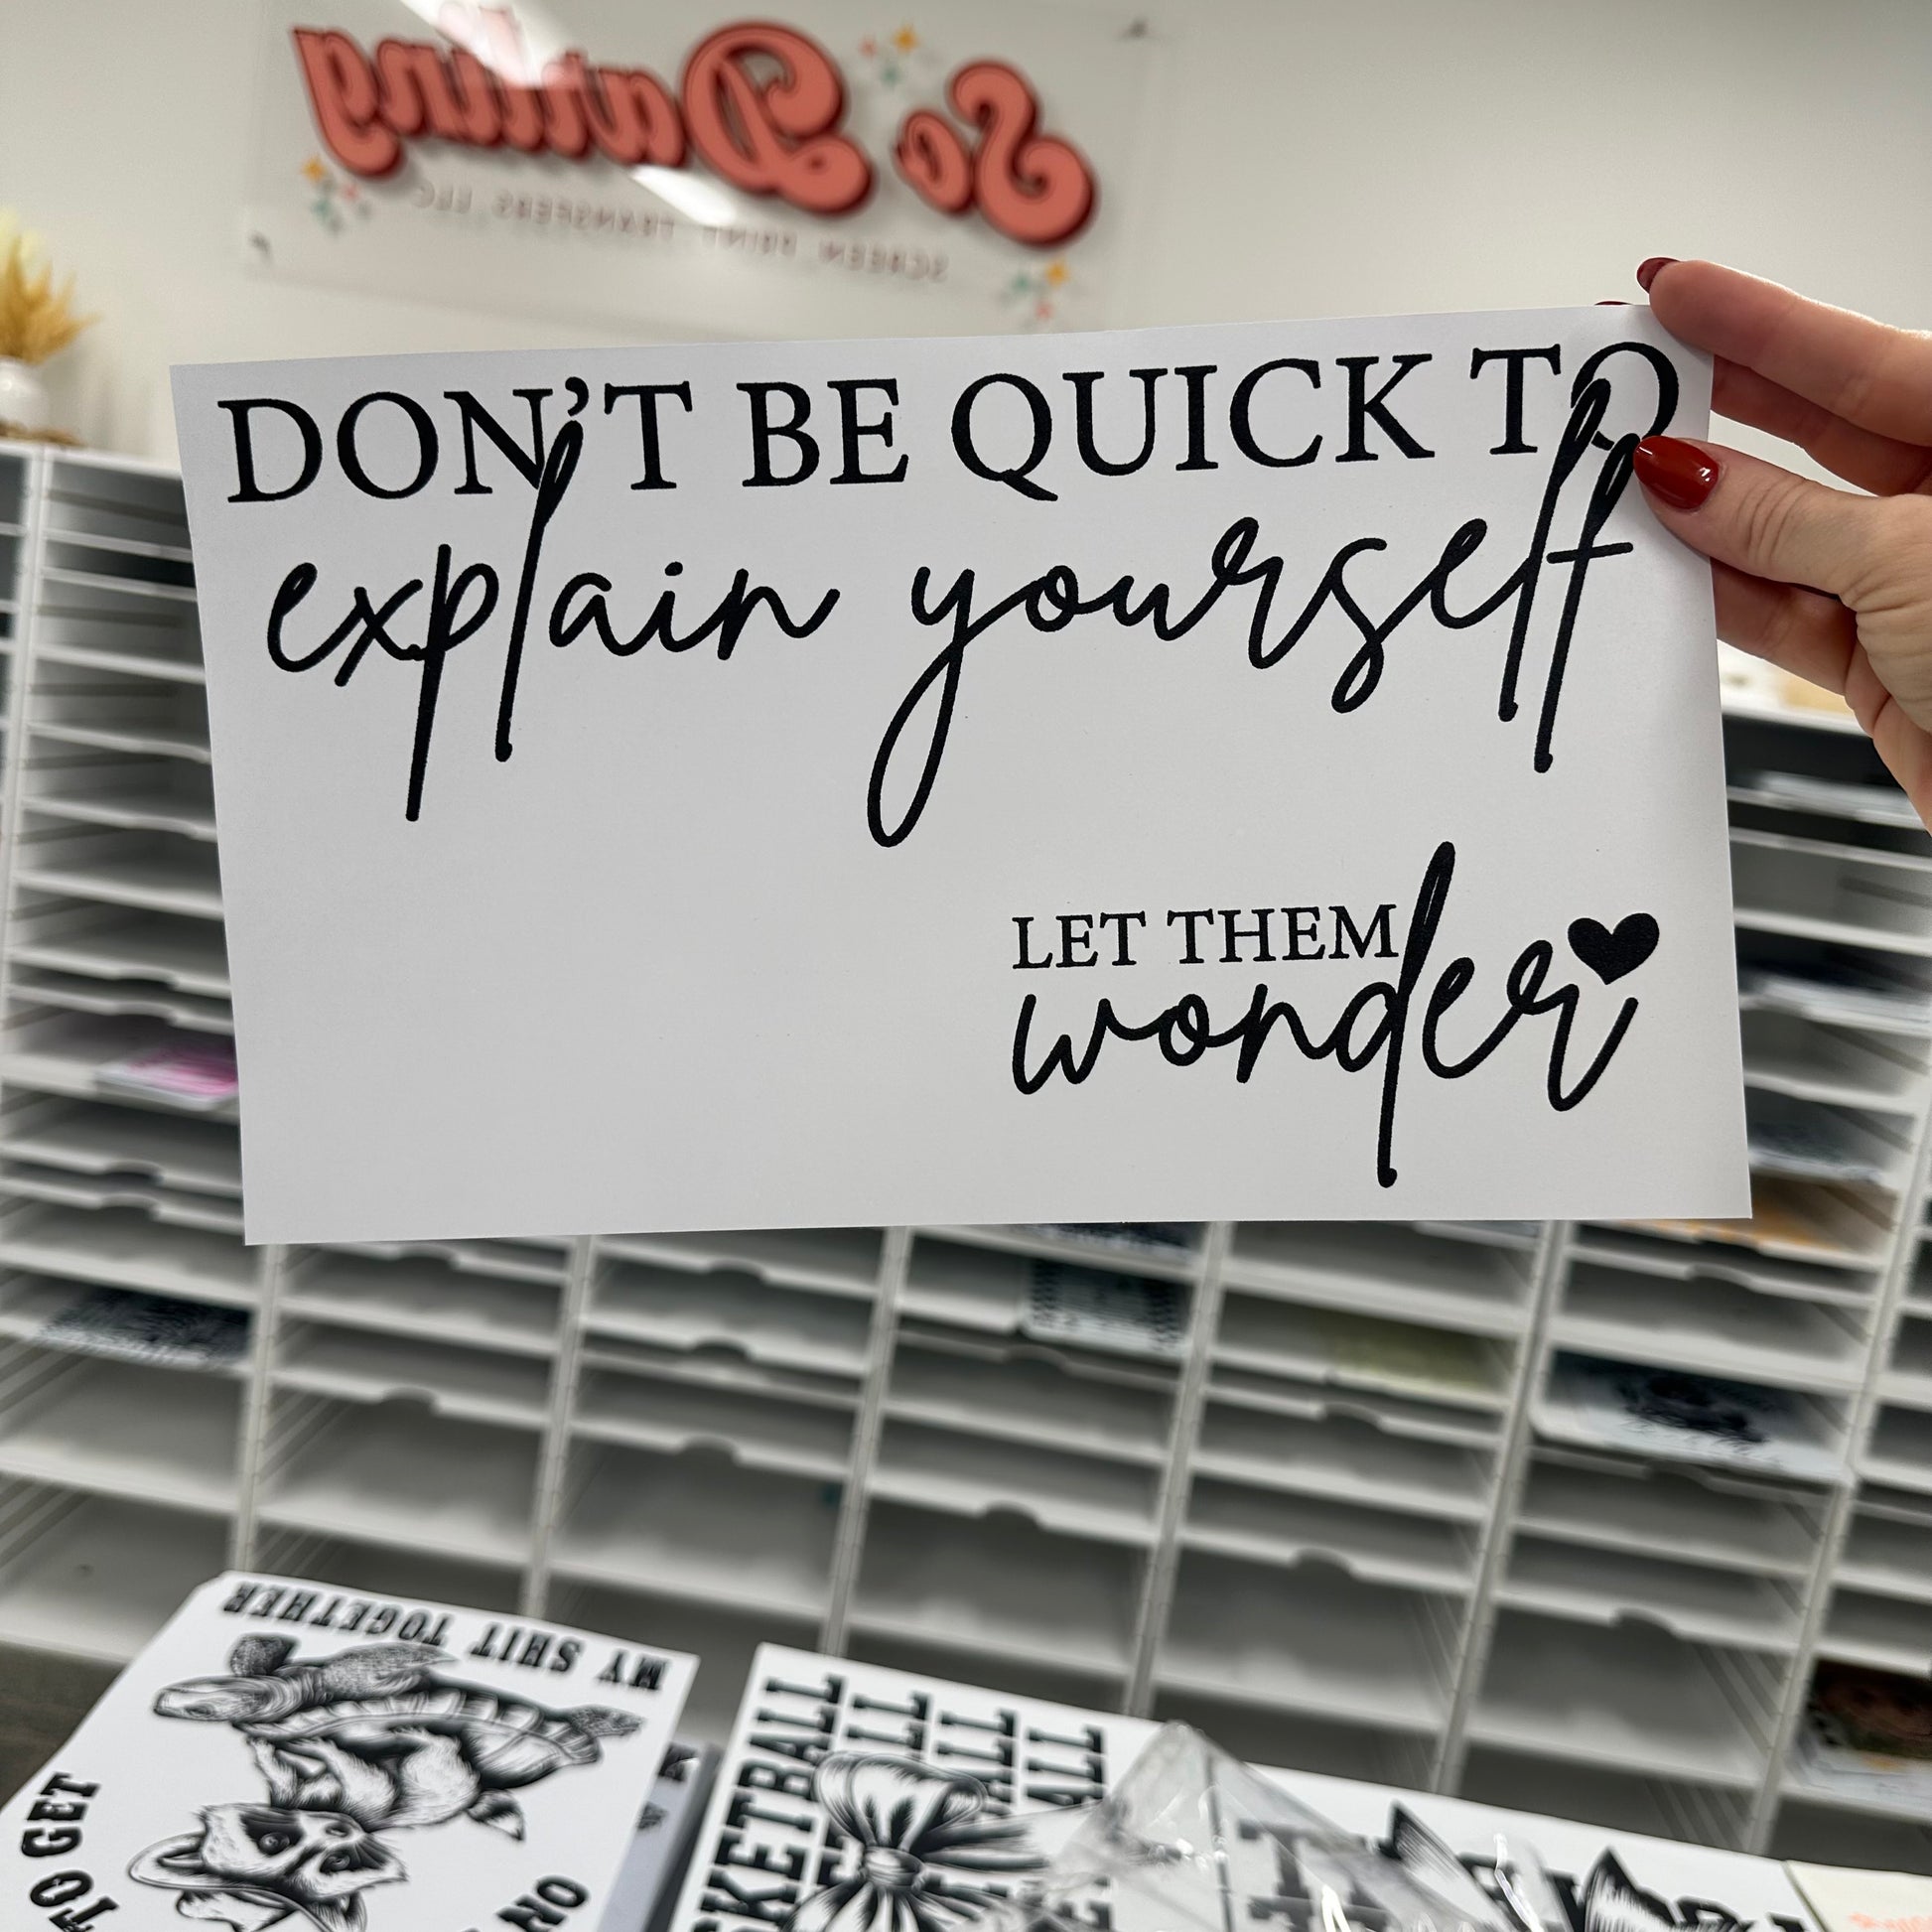 So Darling
SCREEN PRINT TRANSFERS, LLC
DON'T BE QUICK TO
explain yourself
LET THEM
wonder
MY SHIT TOGETHER
TO GET
ON
SKETBALL
ALL
ALL
ALL